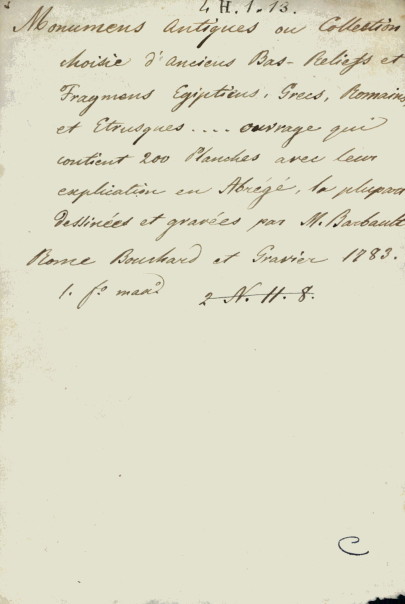 4 H. 1. 13.
Monumens Antiques ou Collection
choisie d'Anciens Bas-Reliefs et
Fragmens Egiptiens, Grecs, Romains,
et Etrusques .... ouvrage qui
contient 200 Planches avec leur
explication en Abrégé, la plupart
dessinées et gravées par M. Barbault
Rome Bouchard et Gravier 1783.
1. fo max.o 2 N. H. 8.
C